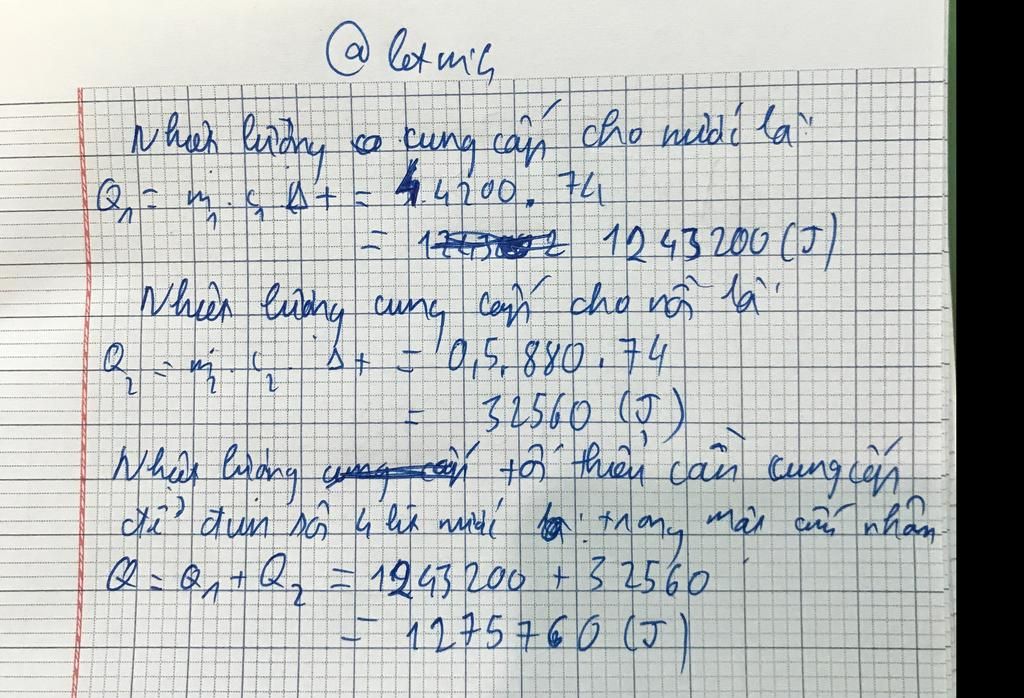 @letmih
Nhiệt lượng cung cấp cho nước là:
Q₁ = m₁. c₁ Δt = 4.4200.74
= 1243200 (J)
Nhiệt lượng cung cấp cho nồi là:
Q₂ = m₂. c₂. Δt = 0,5.880.74
= 32560 (J)
Nhiệt lượng tối thiểu cần cung cấp
để đun sôi 4 lít nước trong màn nhôm
Q = Q₁ + Q₂ = 1243200 + 32560
= 1275760 (J)